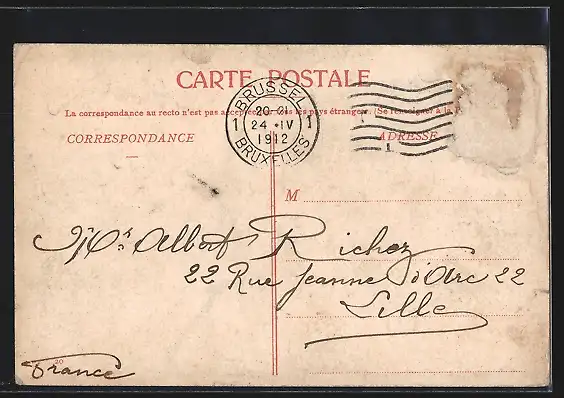 CARTE POSTALE
La correspondance au recto n'est pas acceptée par tous les pays étrangers. (Se renseigner à la
CORRESPONDANCE
ADRESSE
BRUSSEL
1 20-21 1
24 IV
1912
BRUXELLES
M
Mr Albert Richez
22 Rue Jeanne d'Arc 22
Lille
France